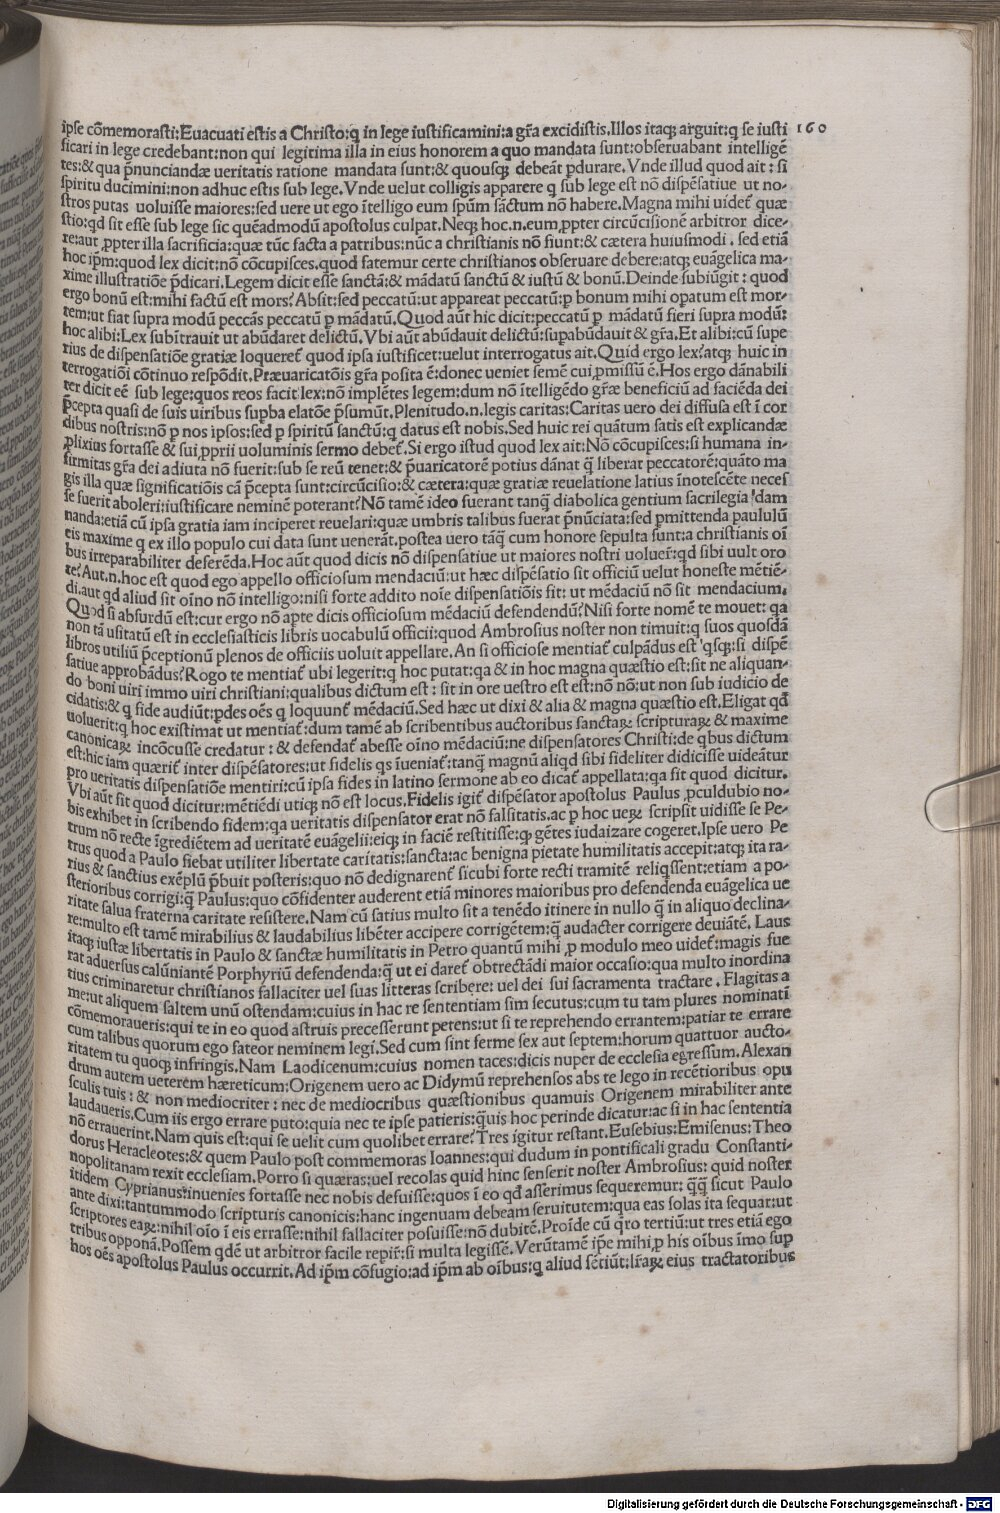 ipse cōmemorasti:Euacuati estis a Christo:q in lege iustificamini:a gr̄a excidistis.Illos itaq; arguit:q se iusti 160
ficari in lege credebant:non qui legitima illa in eius honorem a quo mandata sunt:obseruabant intelligē
tes:& qua p̄nunciandæ ueritatis ratione mandata sunt:& quousq; debeāt pdurare.Vnde illud quod ait : si
spiritu ducimini:non adhuc estis sub lege.Vnde uelut colligis apparere q sub lege est nō dispēsatiue ut no-
stros putas uoluisse maiores:sed uere ut ego ītelligo eum spūm sāctum nō habere.Magna mihi uidet̄ quæ
stio:qd sit esse sub lege sic quēadmodū apostolus culpat.Neq; hoc.n.eum ꝓpter circūcisionē arbitror dice-
re:aut ꝓpter illa sacrificia:quæ tūc facta a patribus:nūc a christianis nō fiunt:& cætera huiusmodi . sed etiā
hoc ip̄m:quod lex dicit:nō cōcupisces.quod fatemur certe christianos obseruare debere:atq; euāgelica ma-
xime illustratiōe p̄dicari.Legem dicit esse sanctā:& mādatū sanctū & iustū & bonū.Deinde subiūgit : quod
ergo bonū est:mihi factū est mors?Absit:sed peccatū:ut appareat peccatū:p bonum mihi opatum est mor-
tem:ut fiat supra modū peccās peccatū p mādatū.Quod aūt hic dicit:peccatū p mādatū fieri supra modū:
hoc alibi:Lex subītrauit ut abūdaret delictū.Vbi aūt abūdauit delictū:supabūdauit & gr̄a.Et alibi:cū supe
rius de dispensatiōe gratiæ loqueret̄ quod ipsa iustificet:uelut interrogatus ait.Quid ergo lex?atq; huic in
terrogatiōi cōtinuo respōdit.Præuaricatōis gr̄a posita ē:donec ueniet semē cui ꝓmissū ē.Hos ergo dānabili
ter dicit eē sub lege:quos reos facit lex:nō implētes legem:dum nō ītelligēdo gr̄æ beneficiū ad faciēda dei
p̄cepta quasi de suis uiribus supba elatōe p̄sumūt.Plenitudo.n.legis caritas:Caritas uero dei diffusa est ī cor
dibus nostris:nō p nos ipsos:sed p spiritū sanctū:q datus est nobis.Sed huic rei quātum satis est explicandæ
ꝓlixius fortasse & sui ꝓprii uoluminis sermo debet̄.Si ergo istud quod lex ait:Nō cōcupisces:si humana in-
firmitas gr̄a dei adiuta nō fuerit:sub se reū tenet:& p̄uaricatorē potius dānat q̄ liberat peccatorē:quāto ma
gis illa quæ significatiōis cā p̄cepta sunt:circūcisio:& cætera:quæ gratiæ reuelatione latius īnotescēte neces
se fuerit aboleri:iustificare neminē poterant?Nō tamē ideo fuerant tanq̄ diabolica gentium sacrilegia dam
nanda:etiā cū ipsa gratia iam inciperet reuelari:quæ umbris talibus fuerat p̄nūciata:sed pmittenda paululū
eis maxime q ex illo populo cui data sunt uenerāt.postea uero tāq̄ cum honore sepulta sunt:a christianis oī
bus irreparabiliter deserēda.Hoc aūt quod dicis nō dispensatiue ut maiores nostri uoluer̄t:qd sibi uult oro
te?Aut.n.hoc est quod ego appello officiosum mendaciū:ut hæc dispēsatio sit officiū uelut honeste mētiē-
di.aut qd aliud sit oīno nō intelligo:nisi forte addito noīe dispensatiōis fit: ut mēdaciū nō sit mendacium.
Quod si absurdū est:cur ergo nō apte dicis officiosum mēdaciū defendendū?Nisi forte nomē te mouet: qa
non tā usitatū est in ecclesiasticis libris uocabulū officii:quod Ambrosius noster non timuit:q suos quosdā
libros utiliū p̄ceptionū plenos de officiis uoluit appellare.An si officiose mentiat̄ culpādus est qsq;:si dispē
satiue approbādus?Rogo te mentiat̄ ubi legerit:q hoc putat:qa & in hoc magna quæstio est:sit ne aliquan-
do boni uiri immo uiri christiani:qualibus dictum est : sit in ore uestro est est:nō nō:ut non sub iudicio de
cidatis:& q fide audiūt:pdes oēs q loquunt̄ mēdaciū.Sed hæc ut dixi & alia & magna quæstio est.Eligat qd
uoluerit:q hoc existimat ut mentiat̄:dum tamē ab scribentibus auctoribus sanctaꝝ scripturaꝝ & maxime
canonicaꝝ incōcusse credatur : & defendat̄ abesse oīno mēdaciū:ne dispensatores Christi:de qbus dictum
est:hic iam quærit̄ inter dispēsatores:ut fidelis qs īueniat̄:tanq̄ magnū aliqd sibi fideliter didicisse uideātur
pro ueritatis dispensatiōe mentiri:cū ipsa fides in latino sermone ab eo dicat̄ appellata:qa fit quod dicitur.
Vbi aūt fit quod dicitur:mētiēdi utiq; nō est locus.Fidelis igit̄ dispēsator apostolus Paulus ꝓculdubio no-
bis exhibet in scribendo fidem:qa ueritatis dispensator erat nō falsitatis.ac p hoc ueꝝ scripsit uidisse se Pe-
trum nō recte īgrediētem ad ueritatē euāgelii:eiq; in faciē restitisse:q gētes iudaizare cogeret.Ipse uero Pe
trus quod a Paulo fiebat utiliter libertate caritatis:sancta:ac benigna pietate humilitatis accepit:atq; ita ra-
rius & sanctius exēplū p̄buit posteris:quo nō dedignarent̄ sicubi forte recti tramitē reliqssent:etiam a po-
sterioribus corrigi:q̄ Paulus:quo cōfidenter auderent etiā minores maioribus pro defendenda euāgelica ue
ritate salua fraterna caritate resistere.Nam cū satius multo sit a tenēdo itinere in nullo q̄ in aliquo declina-
re:multo est tamē mirabilius & laudabilius libēter accipere corrigētem:q̄ audacter corrigere deuiātē. Laus
itaq; iustæ libertatis in Paulo & sanctæ humilitatis in Petro quantū mihi ꝓ modulo meo uidet̄:magis fue
rat aduersus calūniantē Porphyriū defendenda:q̄ ut ei daret̄ obtrectādi maior occasio:qua multo inordina
tius criminaretur christianos fallaciter uel suas litteras scribere: uel dei sui sacramenta tractare . Flagitas a
me:ut aliquem saltem unū ostendam:cuius in hac re sententiam sim secutus:cum tu tam plures nominatī
cōmemoraueris:qui te in eo quod astruis precesserunt petens:ut si te reprehendo errantem:patiar te errare
cum talibus quorum ego fateor neminem legi.Sed cum sint ferme sex aut septem:horum quattuor aucto-
ritatem tu quoq; infringis.Nam Laodicenum:cuius nomen taces:dicis nuper de ecclesia egressum.Alexan
drum autem ueterem hæreticum:Origenem uero ac Didymū reprehensos abs te lego in recētioribus opu
sculis tuis : & non mediocriter : nec de mediocribus quæstionibus quamuis Origenem mirabiliter ante
laudaueris.Cum iis ergo errare puto:quia nec te ipse patieris:q̄uis hoc perinde dicatur:ac si in hac sententia
nō errauerint.Nam quis est:qui se uelit cum quolibet errare?Tres igitur restant.Eusebius:Emisenus:Theo
dorus Heracleotes:& quem Paulo post commemoras Ioannes:qui dudum in pontificali gradu Constanti-
nopolitanam rexit ecclesiam.Porro si quæras:uel recolas quid hinc senserit noster Ambrosius: quid noster
itidem Cyprianus:inuenies fortasse nec nobis defuisse:quos ī eo qd asserimus sequeremur: q̄q̄ sicut Paulo
ante dixi:tantummodo scripturis canonicis:hanc ingenuam debeam seruitutem:qua eas solas ita sequar:ut
scriptores eaꝝ:nihil oīo ī eis errasse:nihil fallaciter posuisse:nō dubitē.Proīde cū q̄ro tertiū:ut tres etiā ego
tribus opponā.Possem qdē ut arbitror facile repir̄:si multa legissē.Verūtamē ip̄e mihi ꝓ his oībus īmo sup
hos oēs apostolus Paulus occurrit.Ad ip̄m cōfugio:ad ip̄m ab oībus:q aliud sētiūt:lr̄aꝝ eius tractatoribus
Digitalisierung gefördert durch die Deutsche Forschungsgemeinschaft - DFG